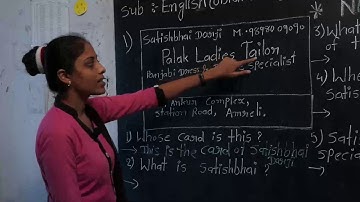 Sub : English
1) Satishbhai Darji M. 98980 09090
Palak Ladies Tailor
Punjabi Dress & Specialist
Ankur Complex,
Station Road, Amreli.
1) Whose card is this ?
→ This is the card of Satishbhai
Darji
2) What is Satishbhai ?
→
3) What
of t
4) Wh
5) Sati
Special